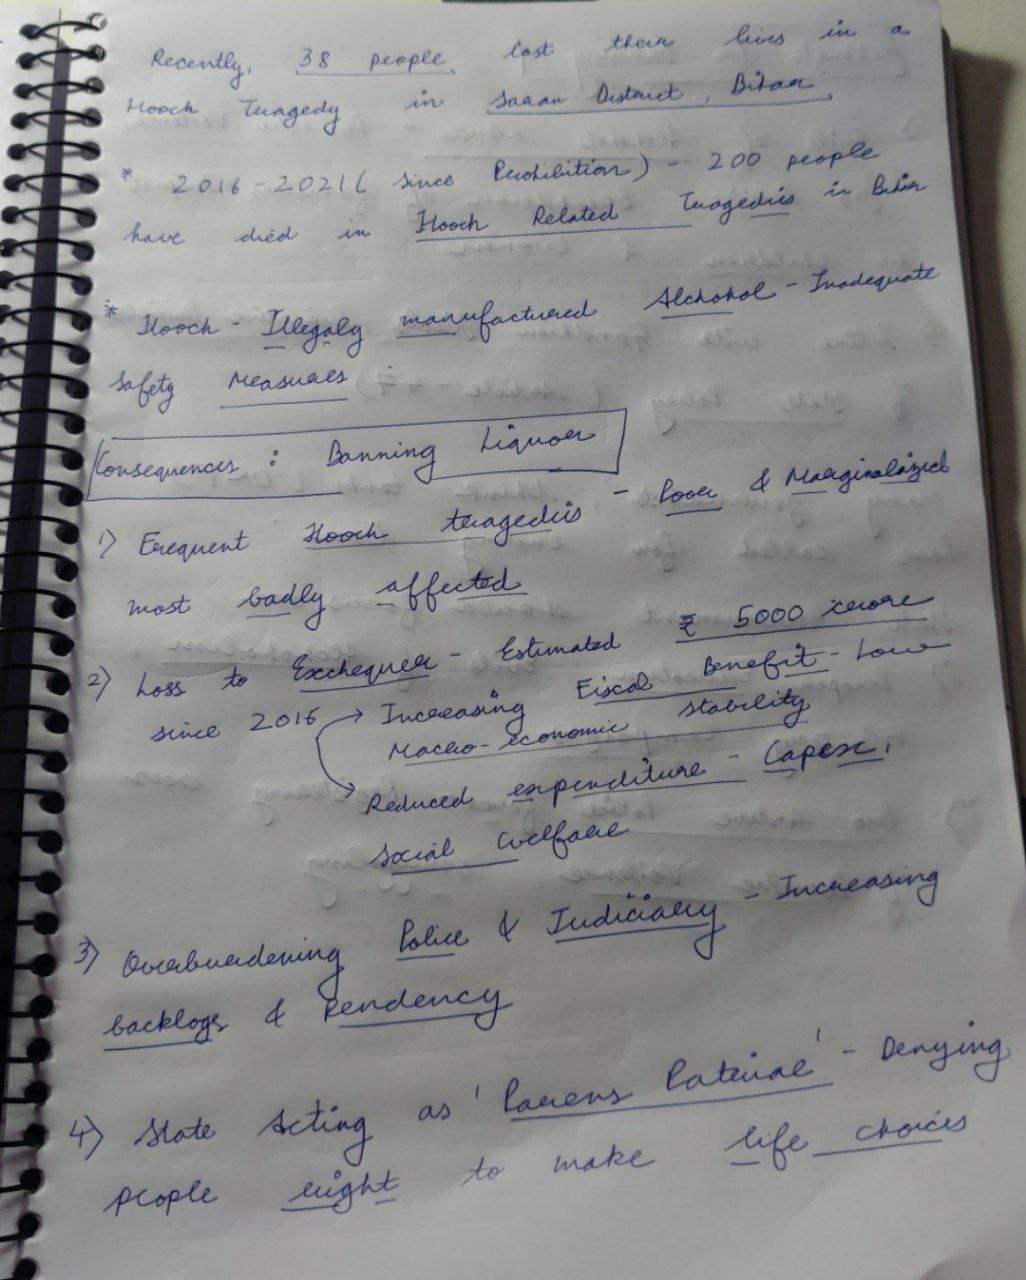 Recently, 38 people, lost their lives in a
Hooch Tragedy in Saran District, Bihar,
* 2016-2021 ( since Prohibition) - 200 people
have died in Hooch Related Tragedies in Bihar
* Hooch - Illegaly manufactured Alchohol - Inadequate
Safety Measures
Consequences : Banning Liquor
1) Frequent Hooch tragedies - Poor & Marginalized
most badly affected
2) Loss to Exchequer - Estimated ₹ 5000 crore
since 2016 → Increasing Fiscal Benefit - Low
Macro-economic stability
→ Reduced expenditure - Capex,
Social Welfare
3) Overburdening Police & Judiciary - Increasing
backlogs & Pendency
4) State Acting as 'Parens Patriae' - Denying
people right to make life choices